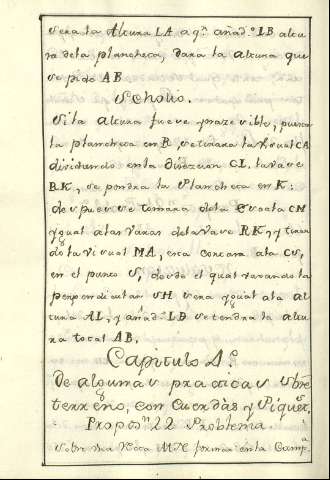 sera la Altura LA a q.ⁿ añad.º LB altu
ra dela plancheta, dara la altura que
se pide AB.
Scholio.
Si la altura fuese ynaccesible, puesta
la plancheta en B, se tirara la visual CA
dirigiendo en la direccion CL. la vase
RK, se pondra la Plancheta en K:
despues se tomara dela Escala CM
ygual a las varas dela vase RK, y tiran
do la visual MA, esta cortara ala CS,
en el punto S, desde el qual tirando la
perpendicular SH sera ygual ala al
tura AL, y añad.º LB se tendra la altu
ra total AB.
Capitulo 4.º
De algunas practicas sbrẽ
terreno, con Cuerdas y Piquet.ˢ
Propos.ⁿ 22 Problema
Sobre una Recta MN forma en la Camp.ª